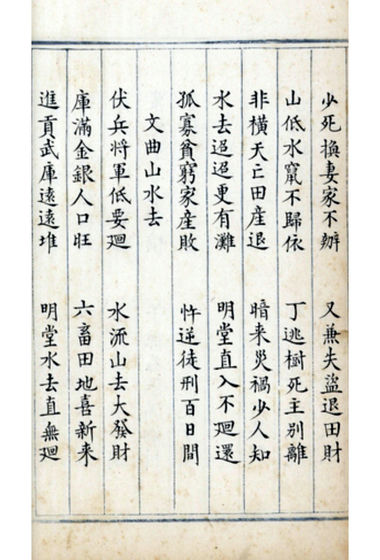 少死換妻家不辦 又兼失盜退田財
山低水竄不歸依 丁逃樹死主別離
非橫天亡田産退 暗来災禍少人知
水去迢迢更有灘 明堂直入不廻還
孤寡貧窮家産敗 忤逆徒刑百日間
文曲山水去
伏兵將軍低要廻 水流山去大發財
庫滿金銀人口旺 六畜田地喜新来
進貢武庫遠遠堆 明堂水去直無廻